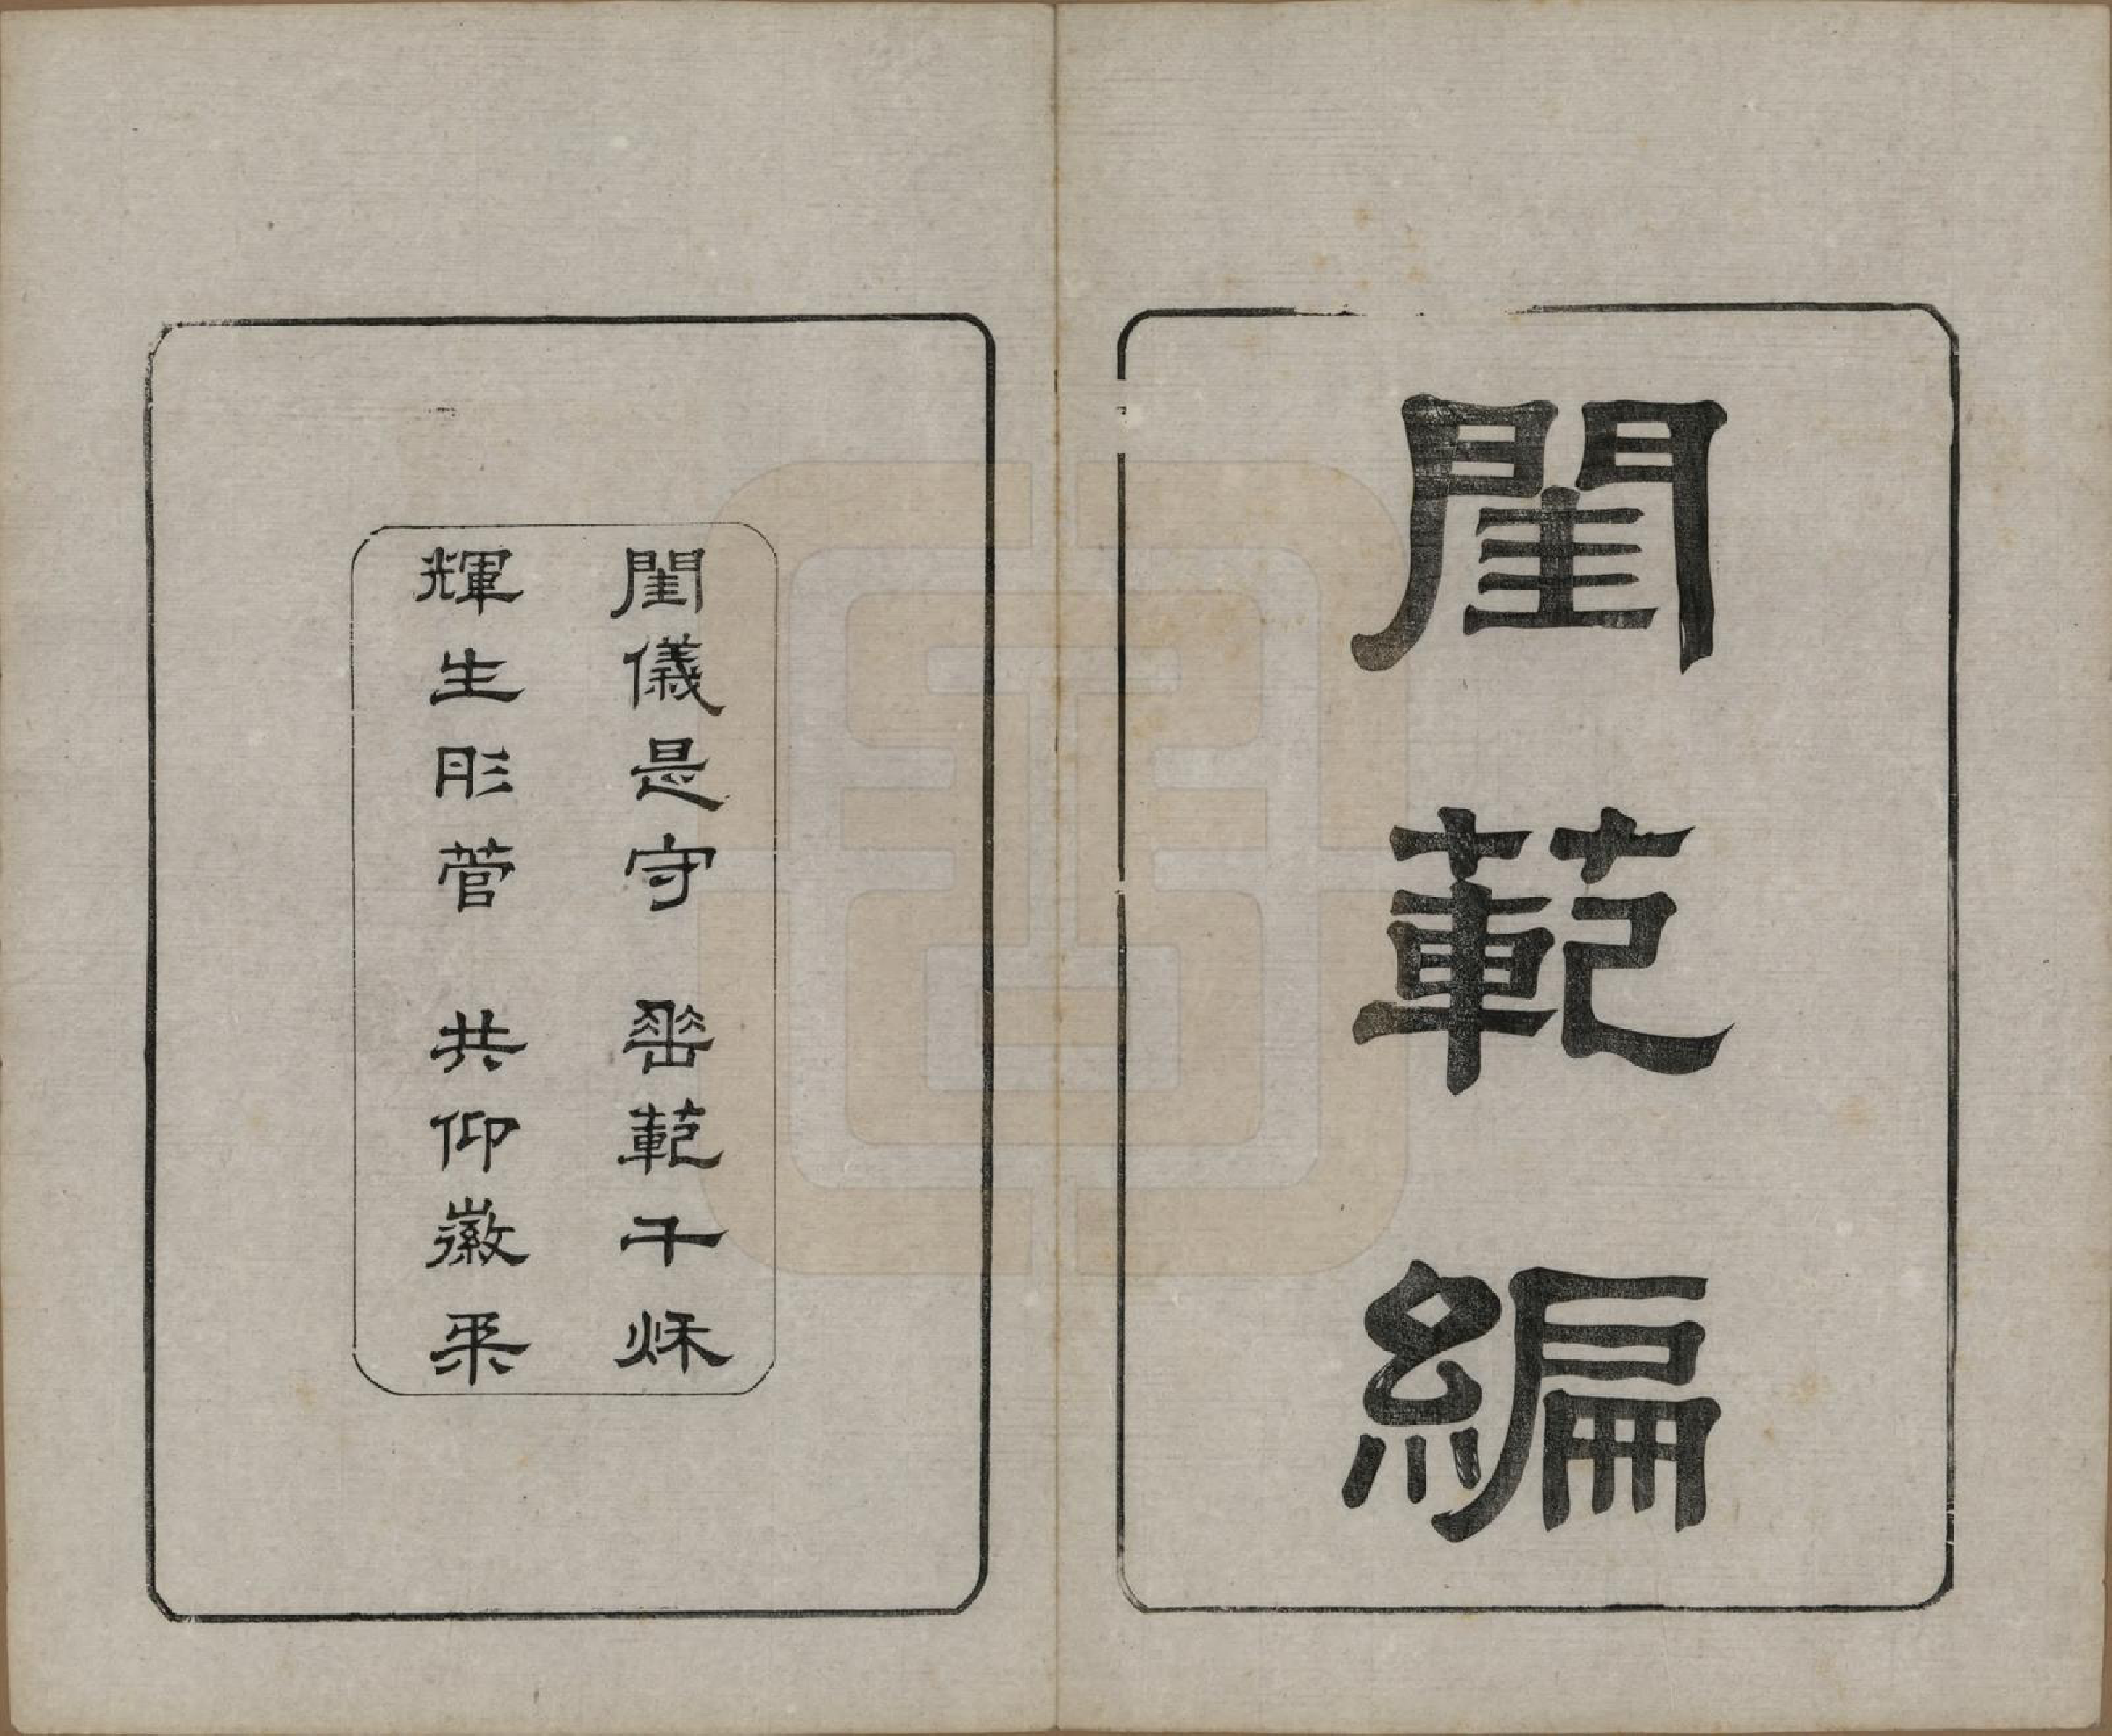 閨範編
閨儀是守 垂範千秌
輝生彤菅 共仰徽采